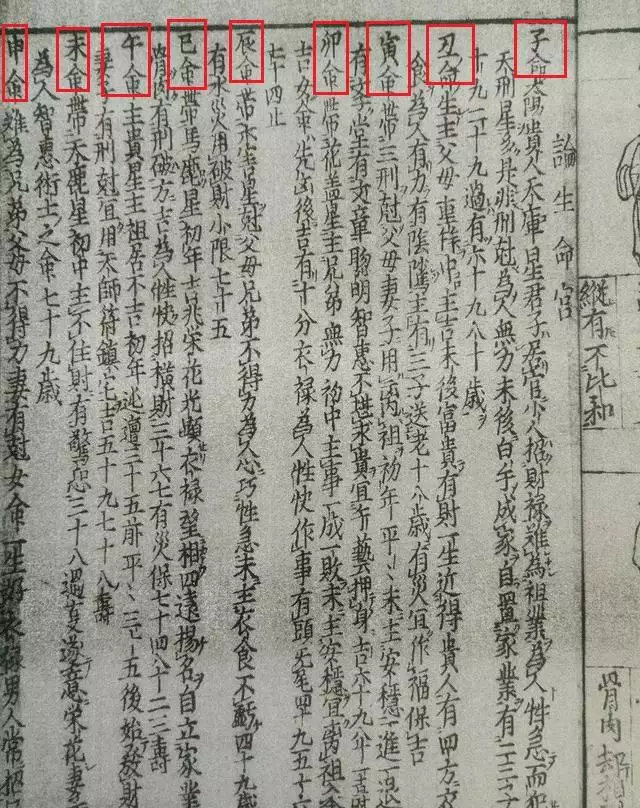 論生命官
子命太陽貴人天庫星君子居官少人招財祿難為祖業為人性急而犯
天刑星多是非刑尅為人無力末後白手成家自置家業有二三子
十九二十九過有六十九八十歲
丑命生主父母重拜中主吉末後富貴有財一生近得貴人有四方衣
食為人有力有陰隲主有三子送老十八歲有災宜作福保吉
寅命帶三刑尅父母妻子用离祖初年平〻末主安穩一進一退
有文堂有文章聰明智惠不世求貴宜有藝押身吉六十九八十吉
卯命帶花蓋星主兄弟無力初中主事一成一敗末主安穩宜离祖
吉女命先凶後吉有十分衣祿為人性快作事有頭无尾四十九五十
七十四止
辰命帶不吉星尅父母兄弟不得力為人心巧性急末主衣食不虧四十九歲
有水災用破財小限七十五
巳命帶馬鹿星初年吉兆榮花光顯衣祿望相四遠揚名自立家業
骨肉有刑破方吉為人性快招橫財三十六七有災保七十四八十二三壽
午命主真星主祖居不吉初年迍邅三十五前平〻三十五後始發財
妻子有刑尅宜用天師符鎮宅吉五十九七十八壽
未命帶天鹿星初中主不住財有驚恐三十八過有遂意榮花妻
為人智惠術士之命七十九歲
申命難為兄弟父母不得力妻有尅女命一生好衣祿男人常把
縱有不比和
骨肉